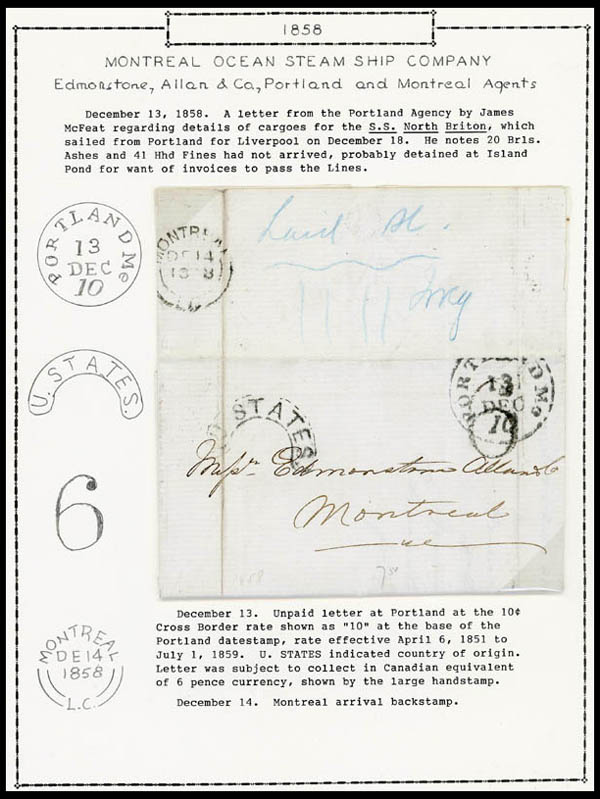 1858
MONTREAL OCEAN STEAM SHIP COMPANY
Edmonstone, Allan & Co., Portland and Montreal Agents
December 13, 1858. A letter from the Portland Agency by James
McFeat regarding details of cargoes for the S.S. North Briton, which
sailed from Portland for Liverpool on December 18. He notes 20 Brls.
Ashes and 41 Hhd Fines had not arrived, probably detained at Island
Pond for want of invoices to pass the Lines.
PORTLAND Me
13
DEC
10
U. STATES.
6
MONTREAL
DE 14
1858
L.C.
MONTREAL
DE 14
1858
L.C.
PORTLAND Me
13
DEC
10
U STATES
Messrs Edmonstone Allan & Co
Montreal
CE
December 13. Unpaid letter at Portland at the 10¢
Cross Border rate shown as "10" at the base of the
Portland datestamp, rate effective April 6, 1851 to
July 1, 1859. U. STATES indicated country of origin.
Letter was subject to collect in Canadian equivalent
of 6 pence currency, shown by the large handstamp.
December 14. Montreal arrival backstamp.